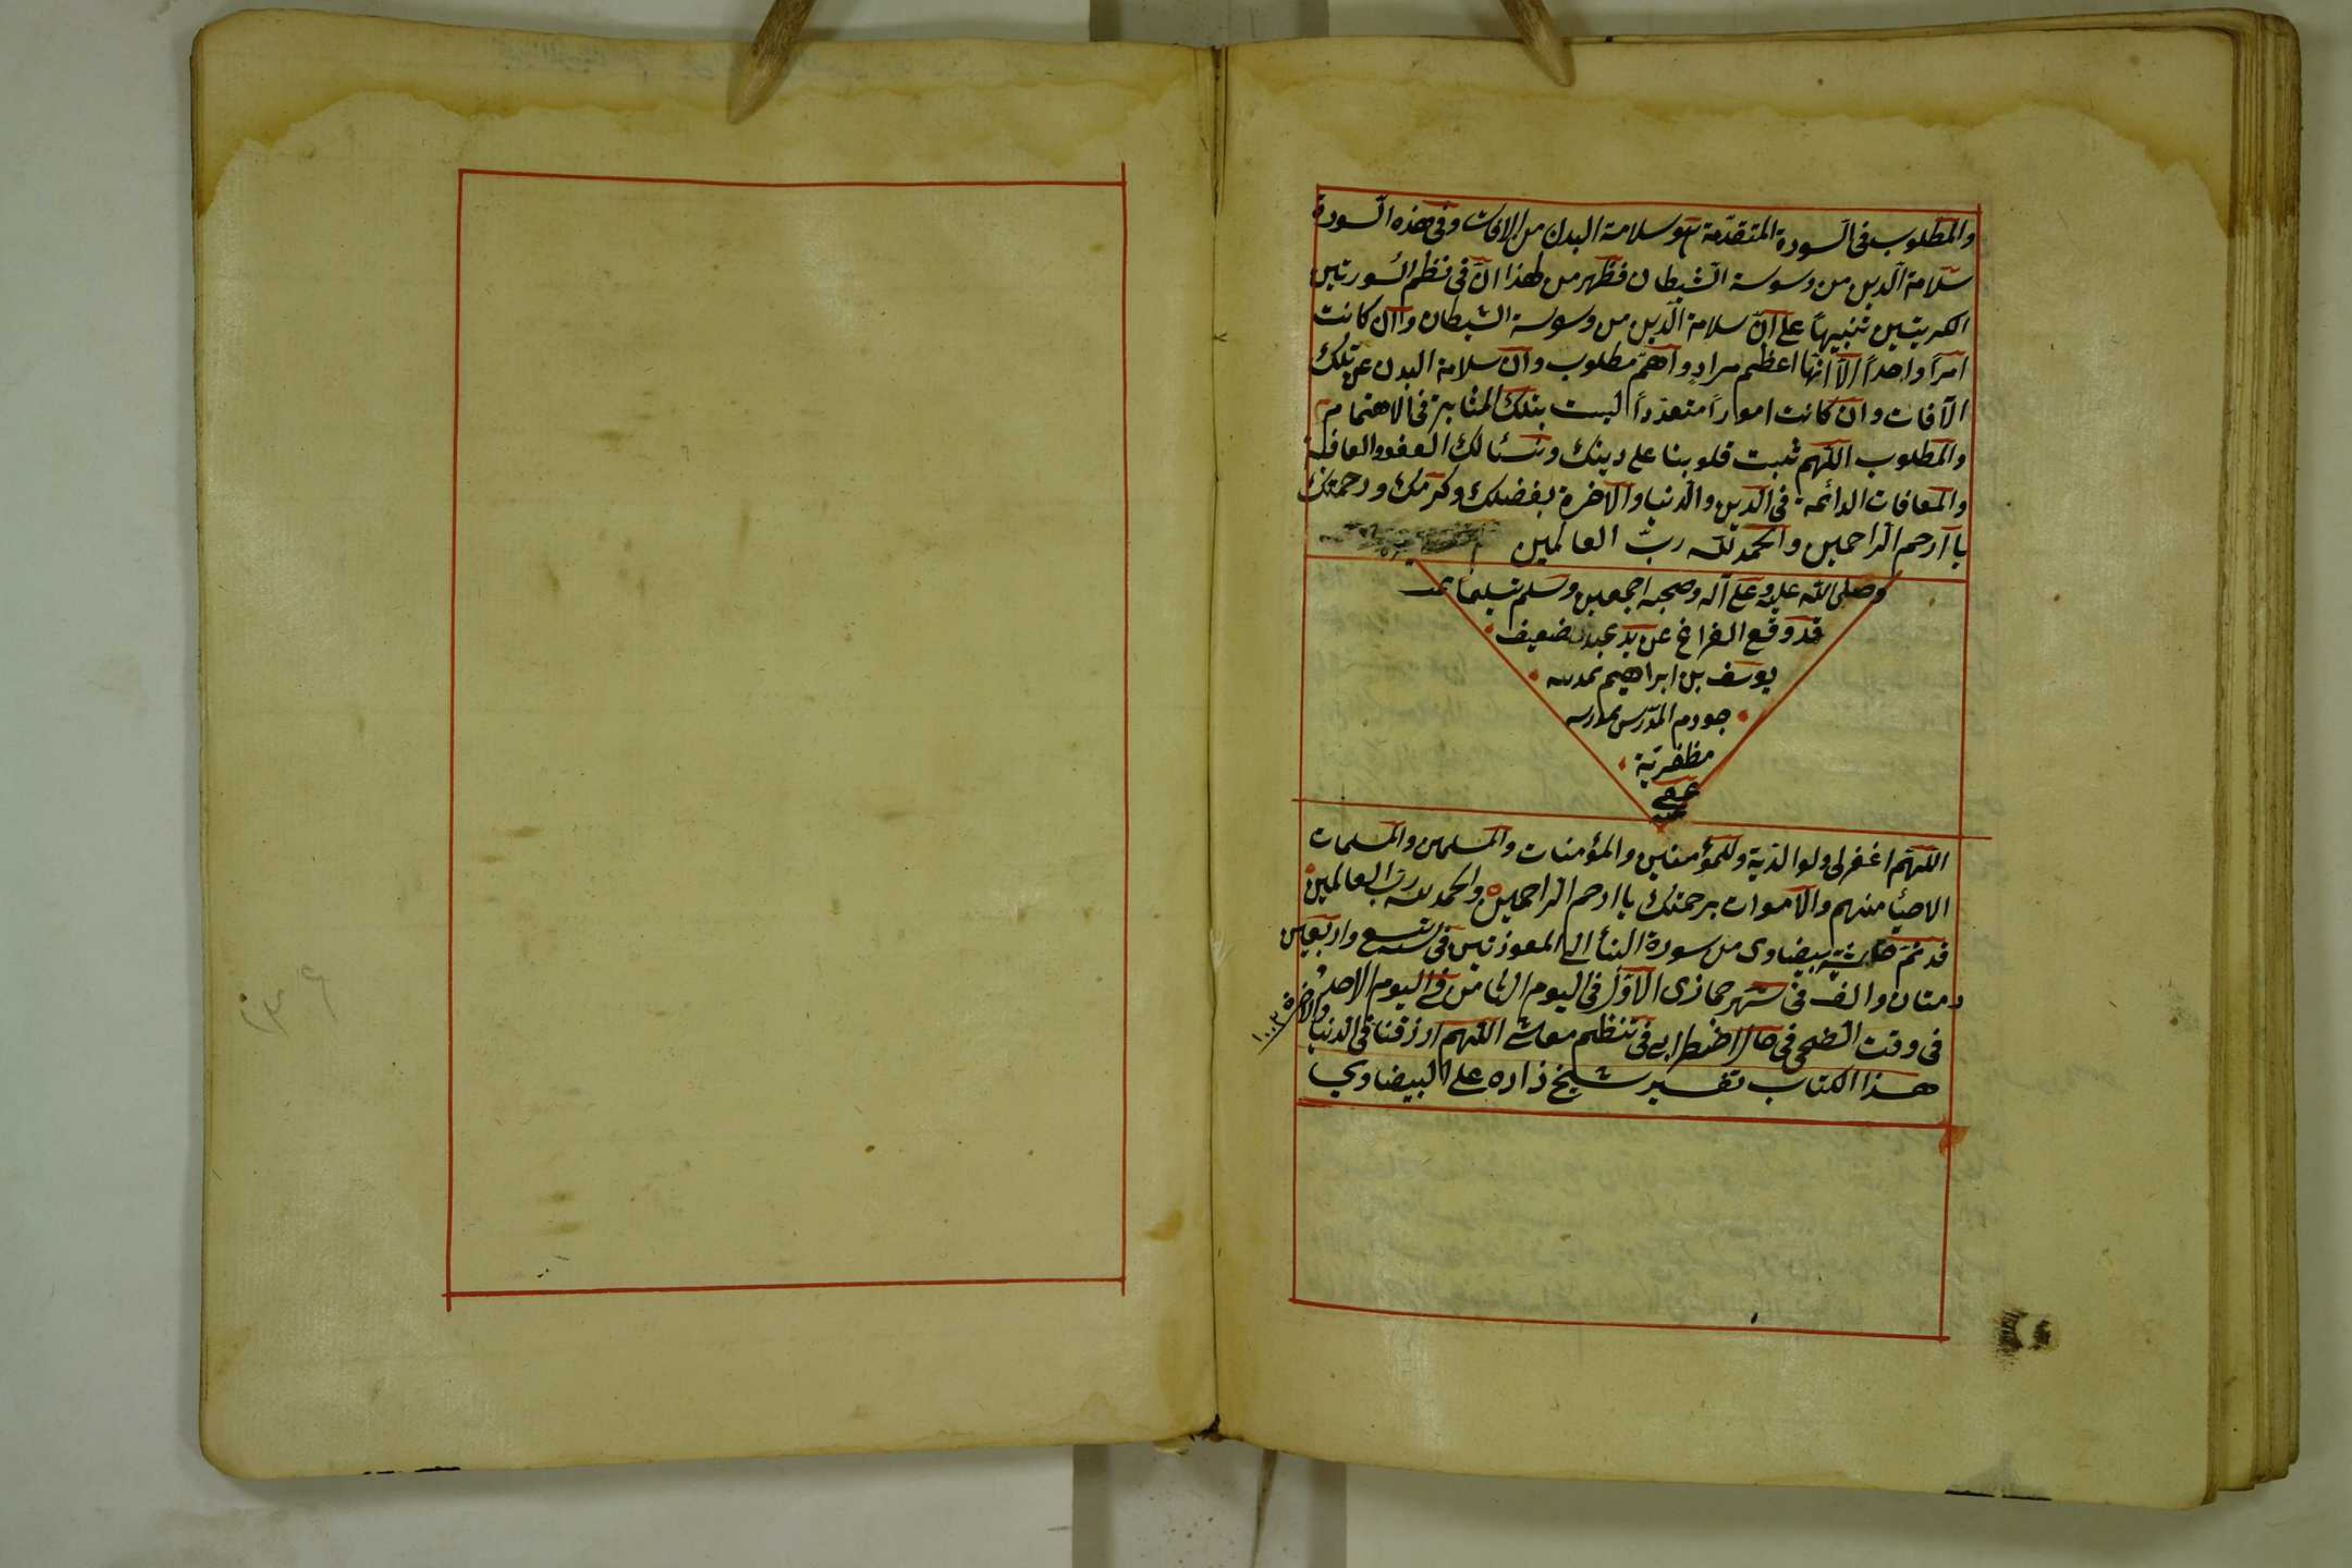 والمطلوب فى السورة المتقدّمة هو سلامة البدن من الافات وفى هذه السورة
سلامة الدين من وسوسة الشيطان فظهر من هذا انّ فى نظم السورتين
الكريمتين تنبيهاً على انّ سلامة الدين من وسوسة الشيطان وان كانت
امراً واحداً الّا انّها اعظم مرادٍ واهمّ مطلوب وان سلامة البدن عن تلك
الآفات وان كانت اموراً متعدّداً ليست بتلك المثابة فى الاهتمام
والمطلوب اللهم ثبت قلوبنا على دينك ونسئالك العفو والعافية
والمعافات الدائمة فى الدين والدنيا والآخرة بفضلك وكرمك ورحمتك
يا ارحم الراحمين والحمد لله ربّ العالمين
وصلى الله عليه وعلى آله وصحبه اجمعين وسلم تسليما
قد وقع الفراغ عن يد ضعيف
يوسف بن ابراهيم
المدرّس بمدرسه
مظفريّة
عفى
اللهم اغفر لى ولوالديّه وللمؤمنين والمؤمنات والمسلمين والمسلمات
الاحيا منهم والاموات برحمتك يا ارحم الراحمين والحمد لله رب العالمين
قد تمّ حاشية بيضاوى من سورة النبأ الى المعوذتين فى تسع واربعين
ومتان والف فى شهر جمازى الاوّل فى اليوم الثامن فى اليوم الاحد
فى وقت الضحى فى حال اضطرابى فى تنظيم معاشى اللهم ارزقنا فى الدنيا والاخرة
هذا الكتاب تفسير شيخ زاده على البيضاوي